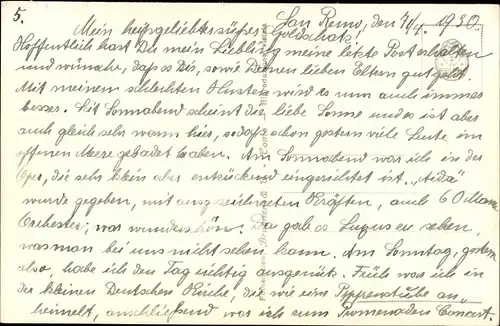 5.
San Remo, den 7/4. 1930.
Mein heissgeliebtes süsses Goldschatz!
Hoffentlich hast Du mein Liebling meine letzte Post erhalten
und wünsche, dass es Dir, sowie Deinen lieben Eltern gut geht.
Mit meinem schlechten Husten wird es nun auch immer
besser. Seit Sonnabend scheint die liebe Sonne und es ist aber
auch gleich sehr warm hier, sodass schon gestern viele Leute im
offenen Meere gebadet haben. Am Sonnabend war ich in der
Oper, die sehr klein aber entzückend eingerichtet ist. „Aida"
wurde gegeben, mit ausgezeichneten Kräften, auch 60 Mann
Orchester; war wunderschön. Da gab es Luxus zu sehen,
was man bei uns nicht sehen kann. Am Sonntag, gestern
also, habe ich den Tag richtig ausgenützt. Früh war ich in
der kleinen Deutschen Kirche, die wie eine Puppenstube an-
heimelt, anschließend war ich zum Promenaden Concert.